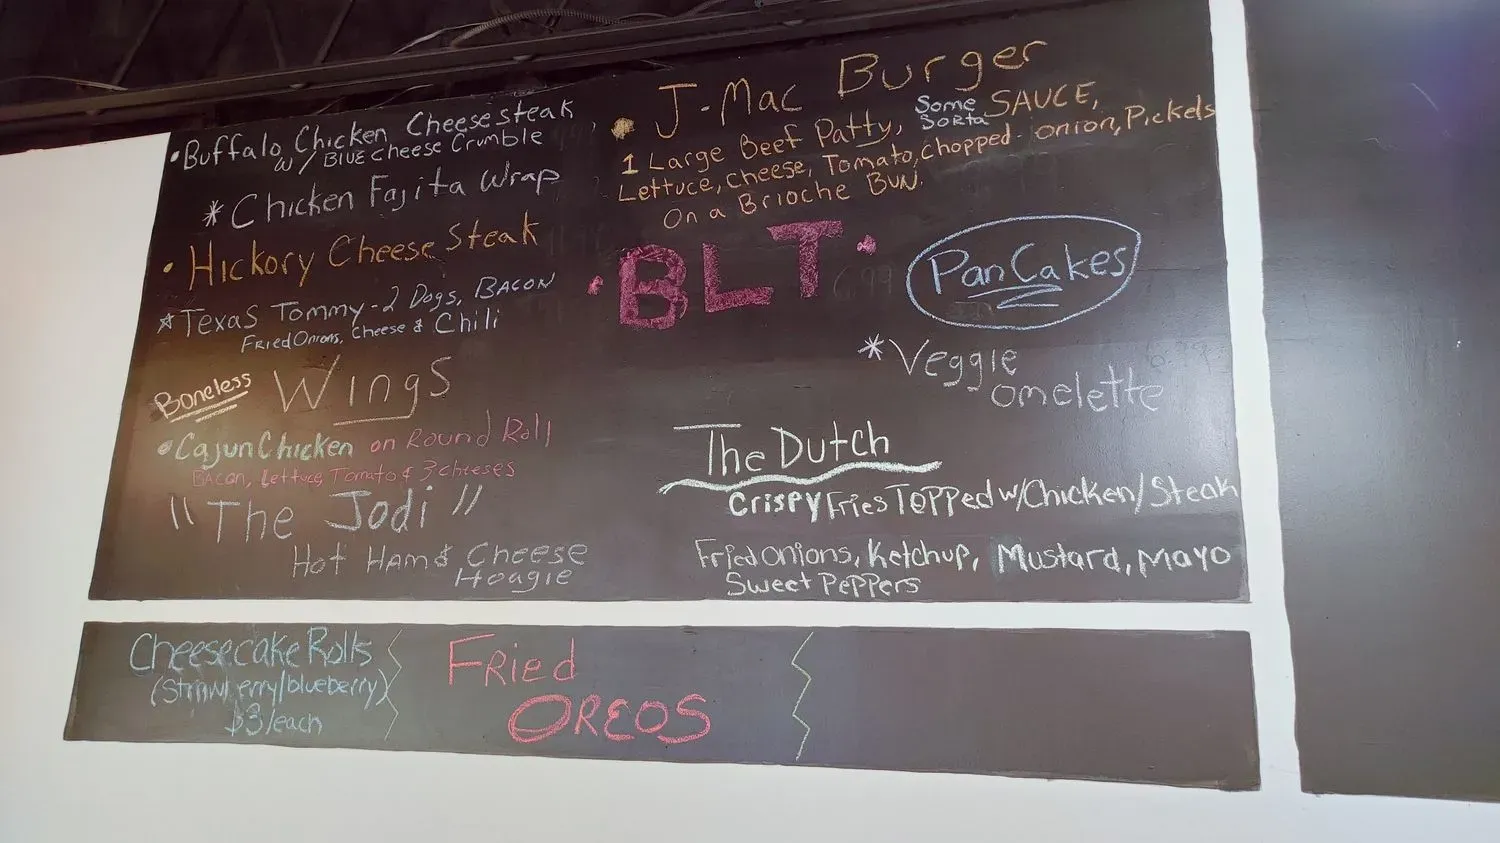 •Buffalo Chicken Cheesesteak
w/ BLUE Cheese Crumble
* Chicken Fajita Wrap
• Hickory Cheese Steak
* Texas Tommy-2 Dogs, BACON
Fried Onions, Cheese & Chili
Boneless Wings
• Cajun Chicken on Round Roll
BACON, Lettuce, Tomato & 3 cheeses
"The Jodi"
Hot Ham & Cheese
Hoagie
• J-Mac Burger
1 Large Beef Patty, Some Sorta SAUCE,
Lettuce, cheese, Tomato, chopped-onion, Pickels
On a Brioche BUN.
•BLT•
6.99
PanCakes
* Veggie
omelette
The Dutch
Crispy Fries TOPPed w/Chicken/Steak
Fried onions, Ketchup, Mustard, Mayo
Sweet PePPers
Cheesecake Rolls
(Strawberry/blueberry)
$3/each
FRied
OREOS